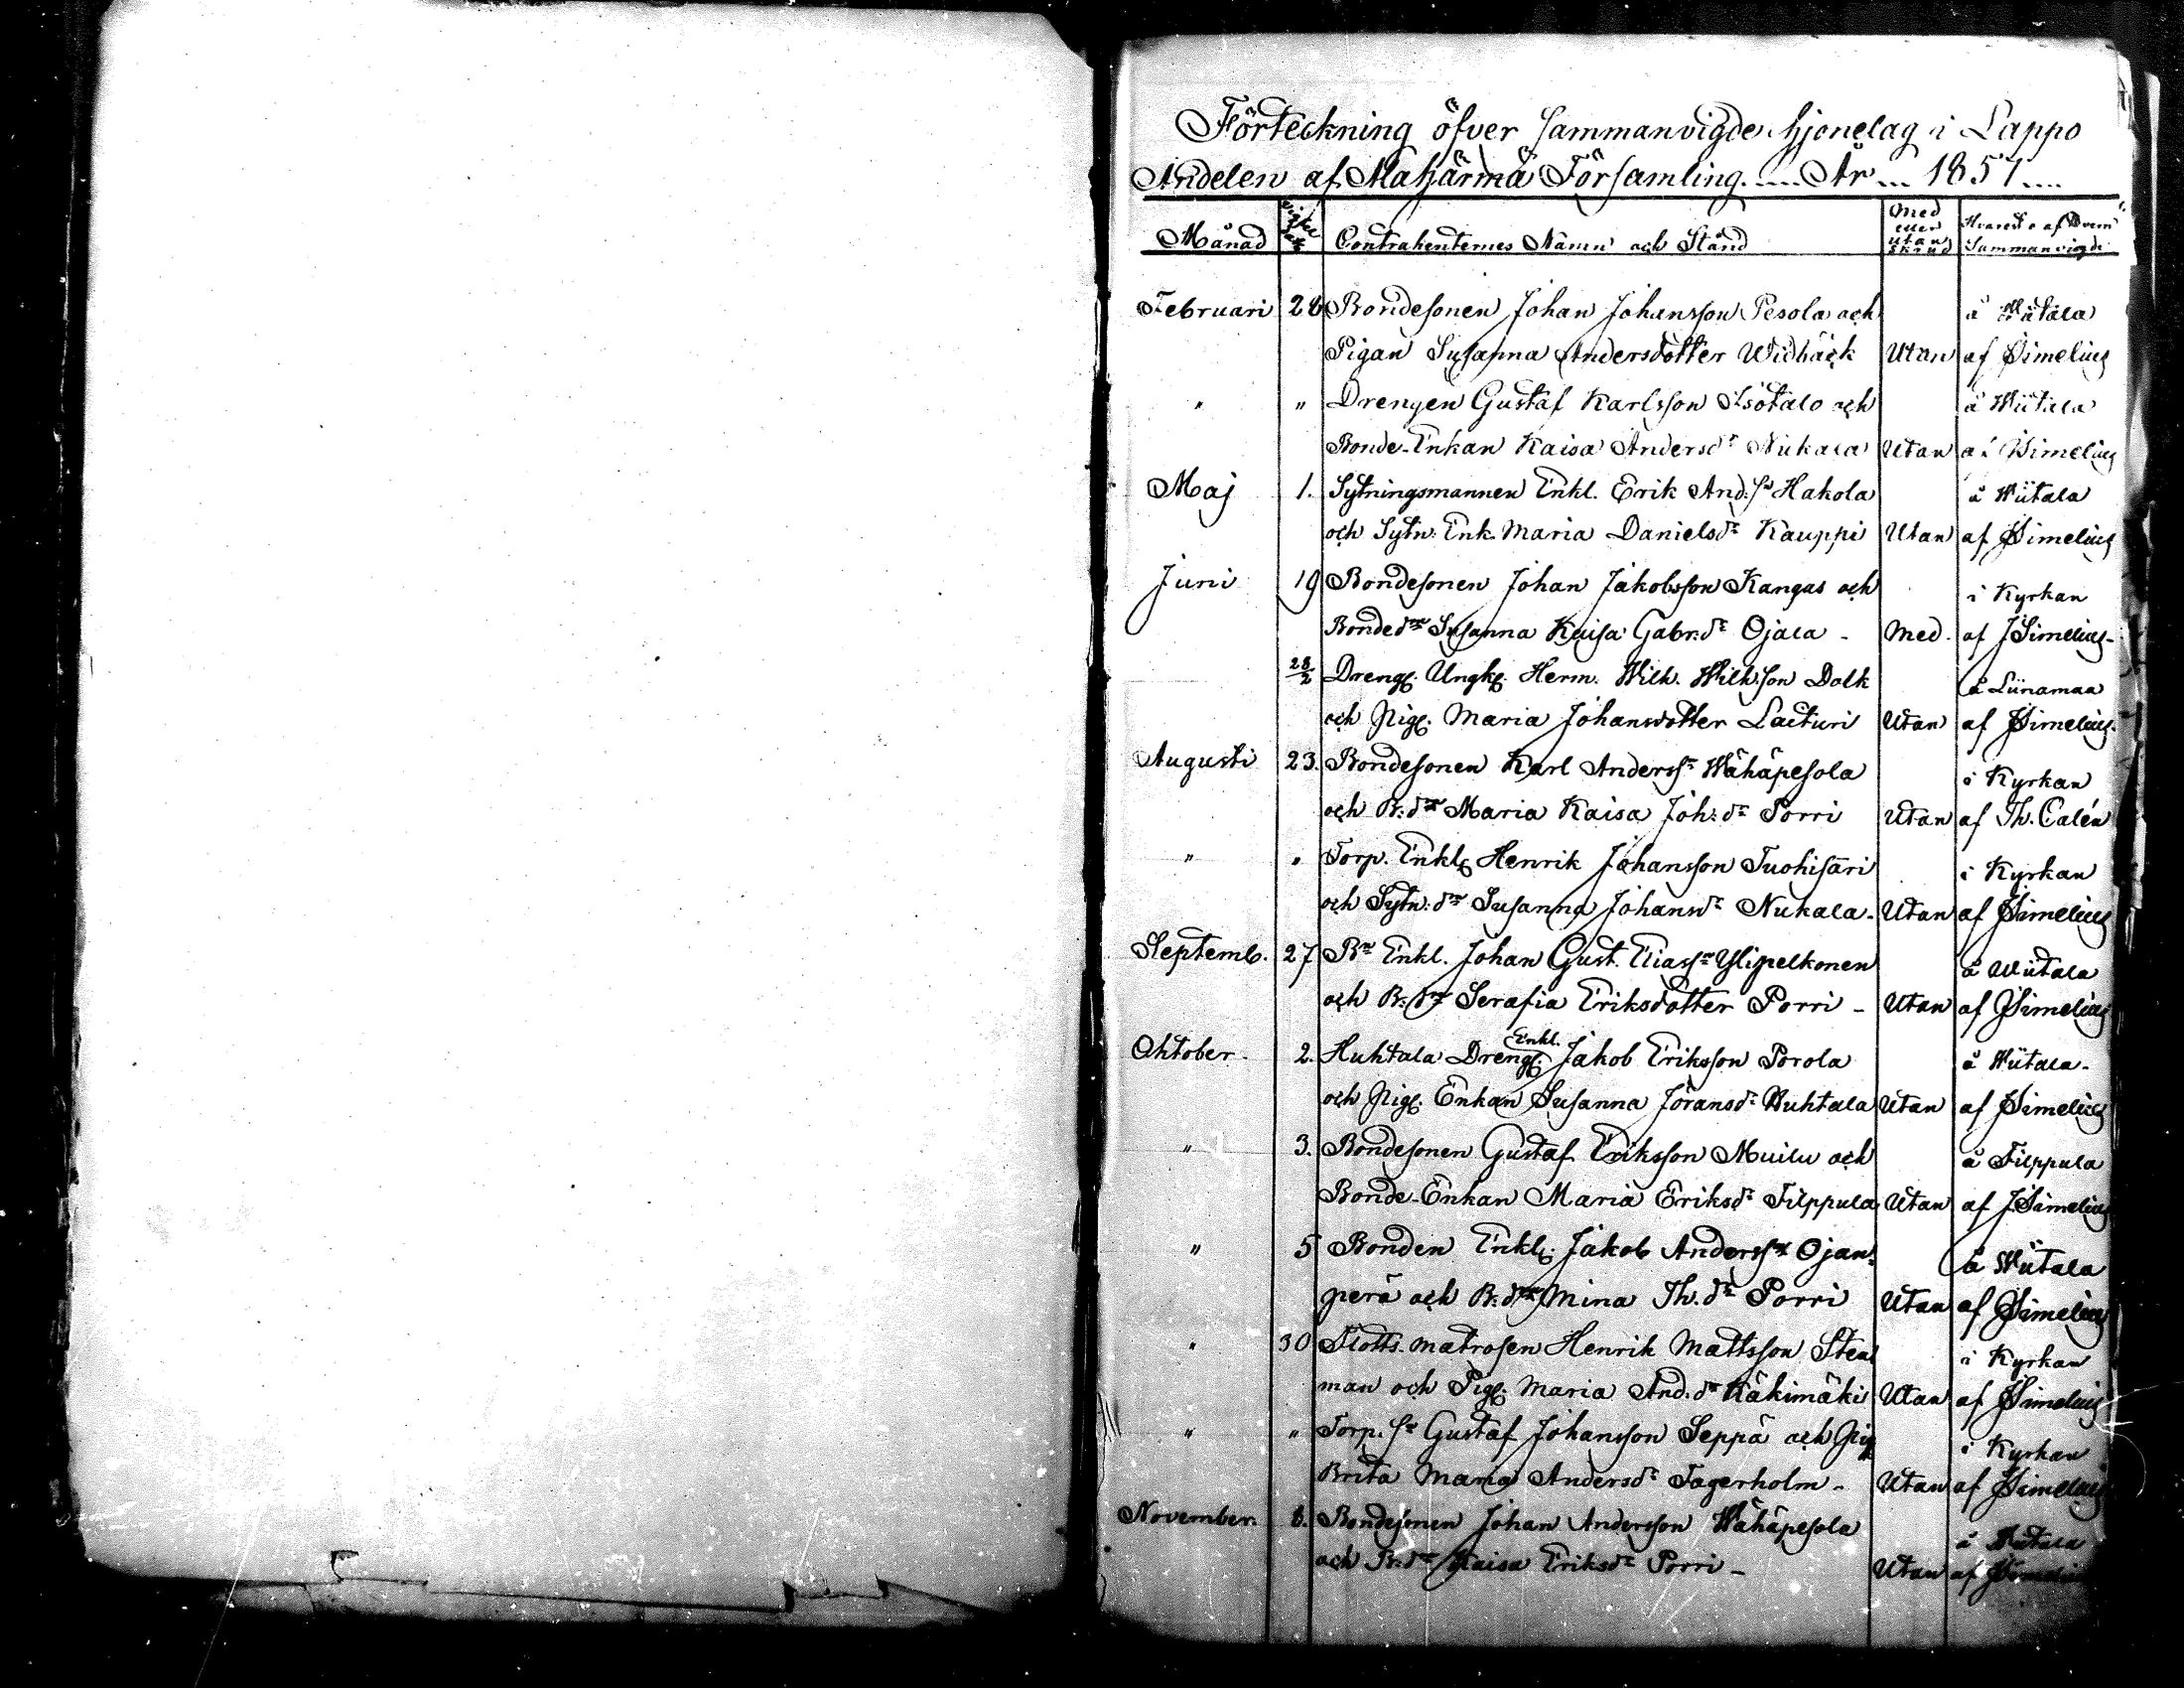 Förteckning öfver sammanvigde hjonelag i Lappo
Andelen af Alahärmä Församling. År 1857
Månad Contrahenternes Namn och Stånd Med eller utan skrud Hvarest o af Hvem Sammanvigde
Februari 28 Bondesonen Johan Johansson Pesola och å Wiitala
Pigan Susanna Andersdotter Widbäck Utan af JSimelius
" " Drengen Gustaf Karlsson Isotalo och å Wiitala
Bonde-Enkan Kaisa Andersdr Nukala Utan af JSimelius
Maj 1. Sytningsmannen Enkl. Erik And:sn Hakola å Wiitala
och Sytn: Enk. Maria Danielsdr Kauppi Utan af JSimelius
Juni 19 Bondesonen Johan Jakobsson Kangas och i Kyrkan
Bondedtr Susanna Kaisa Gabr:dr Ojala - Med. af JSimelius-
28/2 Dreng. Ungk. Herm. Wilh. Wilh:son Dolk å Liinamaa
och Pig. Maria Johansdotter Laituri Utan af JSimelius.
Augusti 23. Bondesonen Karl Anderssn Wähäpesola i Kyrkan
och B:dtr Maria Kaisa Joh:dr Porri Utan af Th. Calén
" " Torp. Enkl. Henrik Johansson Tuohisari i Kyrkan
och Sytn:dtr Susanna Johansdr Nukala. Utan af JSimelius
Septemb. 27 Bn Enkl. Johan Gust. Eliassn Ylipelkonen å Wiitala
och B:dtr Serafia Eriksdotter Porri - Utan af JSimelius
Oktober. 2. Huhtala Dreng. Enkl. Jakob Eriksson Porola å Wiitala-
och Pig. Enkan Susanna Jöransdr Huhtala Utan af JSimelius
" 3. Bondesonen Gustaf Eriksson Muilu och å Filppula
Bonde-Enkan Maria Eriksdr Filppula Utan af JSimelius
" 5 Bonden Enkl. Jakob Anderssn Ojan- å Wiitala
perä och B:dtr Mina Th.dr Porri Utan af JSimelius
" 30 Flotts-matrosen Henrik Mattsson Sten- i Kyrkan
man och Pig. Maria And:dr Käkimäki Utan af JSimelius
" " Torp.sn Gustaf Johansson Seppä och Pig. i Kyrkan
Brita Maria Andersdr Fagerholm - Utan af JSimelius
November. 8. Bondesonen Johan Andersson Wähäpesola å Wiitala
och B:dtr Kaisa Eriksdr Porri - Utan af JSimelius